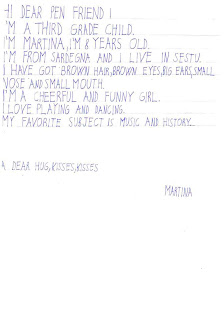 HI DEAR PEN FRIEND!
'M A THIRD GRADE CHILD.
I'M MARTINA, I'M 8 YEARS OLD.
I'M FROM SARDEGNA AND I LIVE IN SESTU.
I HAVE GOT BROWN HAIR, BROWN EYES, BIG EARS, SMALL
NOSE AND SMALL MOUTH.
I'M A CHEERFUL AND FUNNY GIRL.
I LOVE PLAYING AND DANCING.
MY FAVORITE SUBJECT IS MUSIC AND HISTORY...
A DEAR HUG, KISSES, KISSES
MARTINA